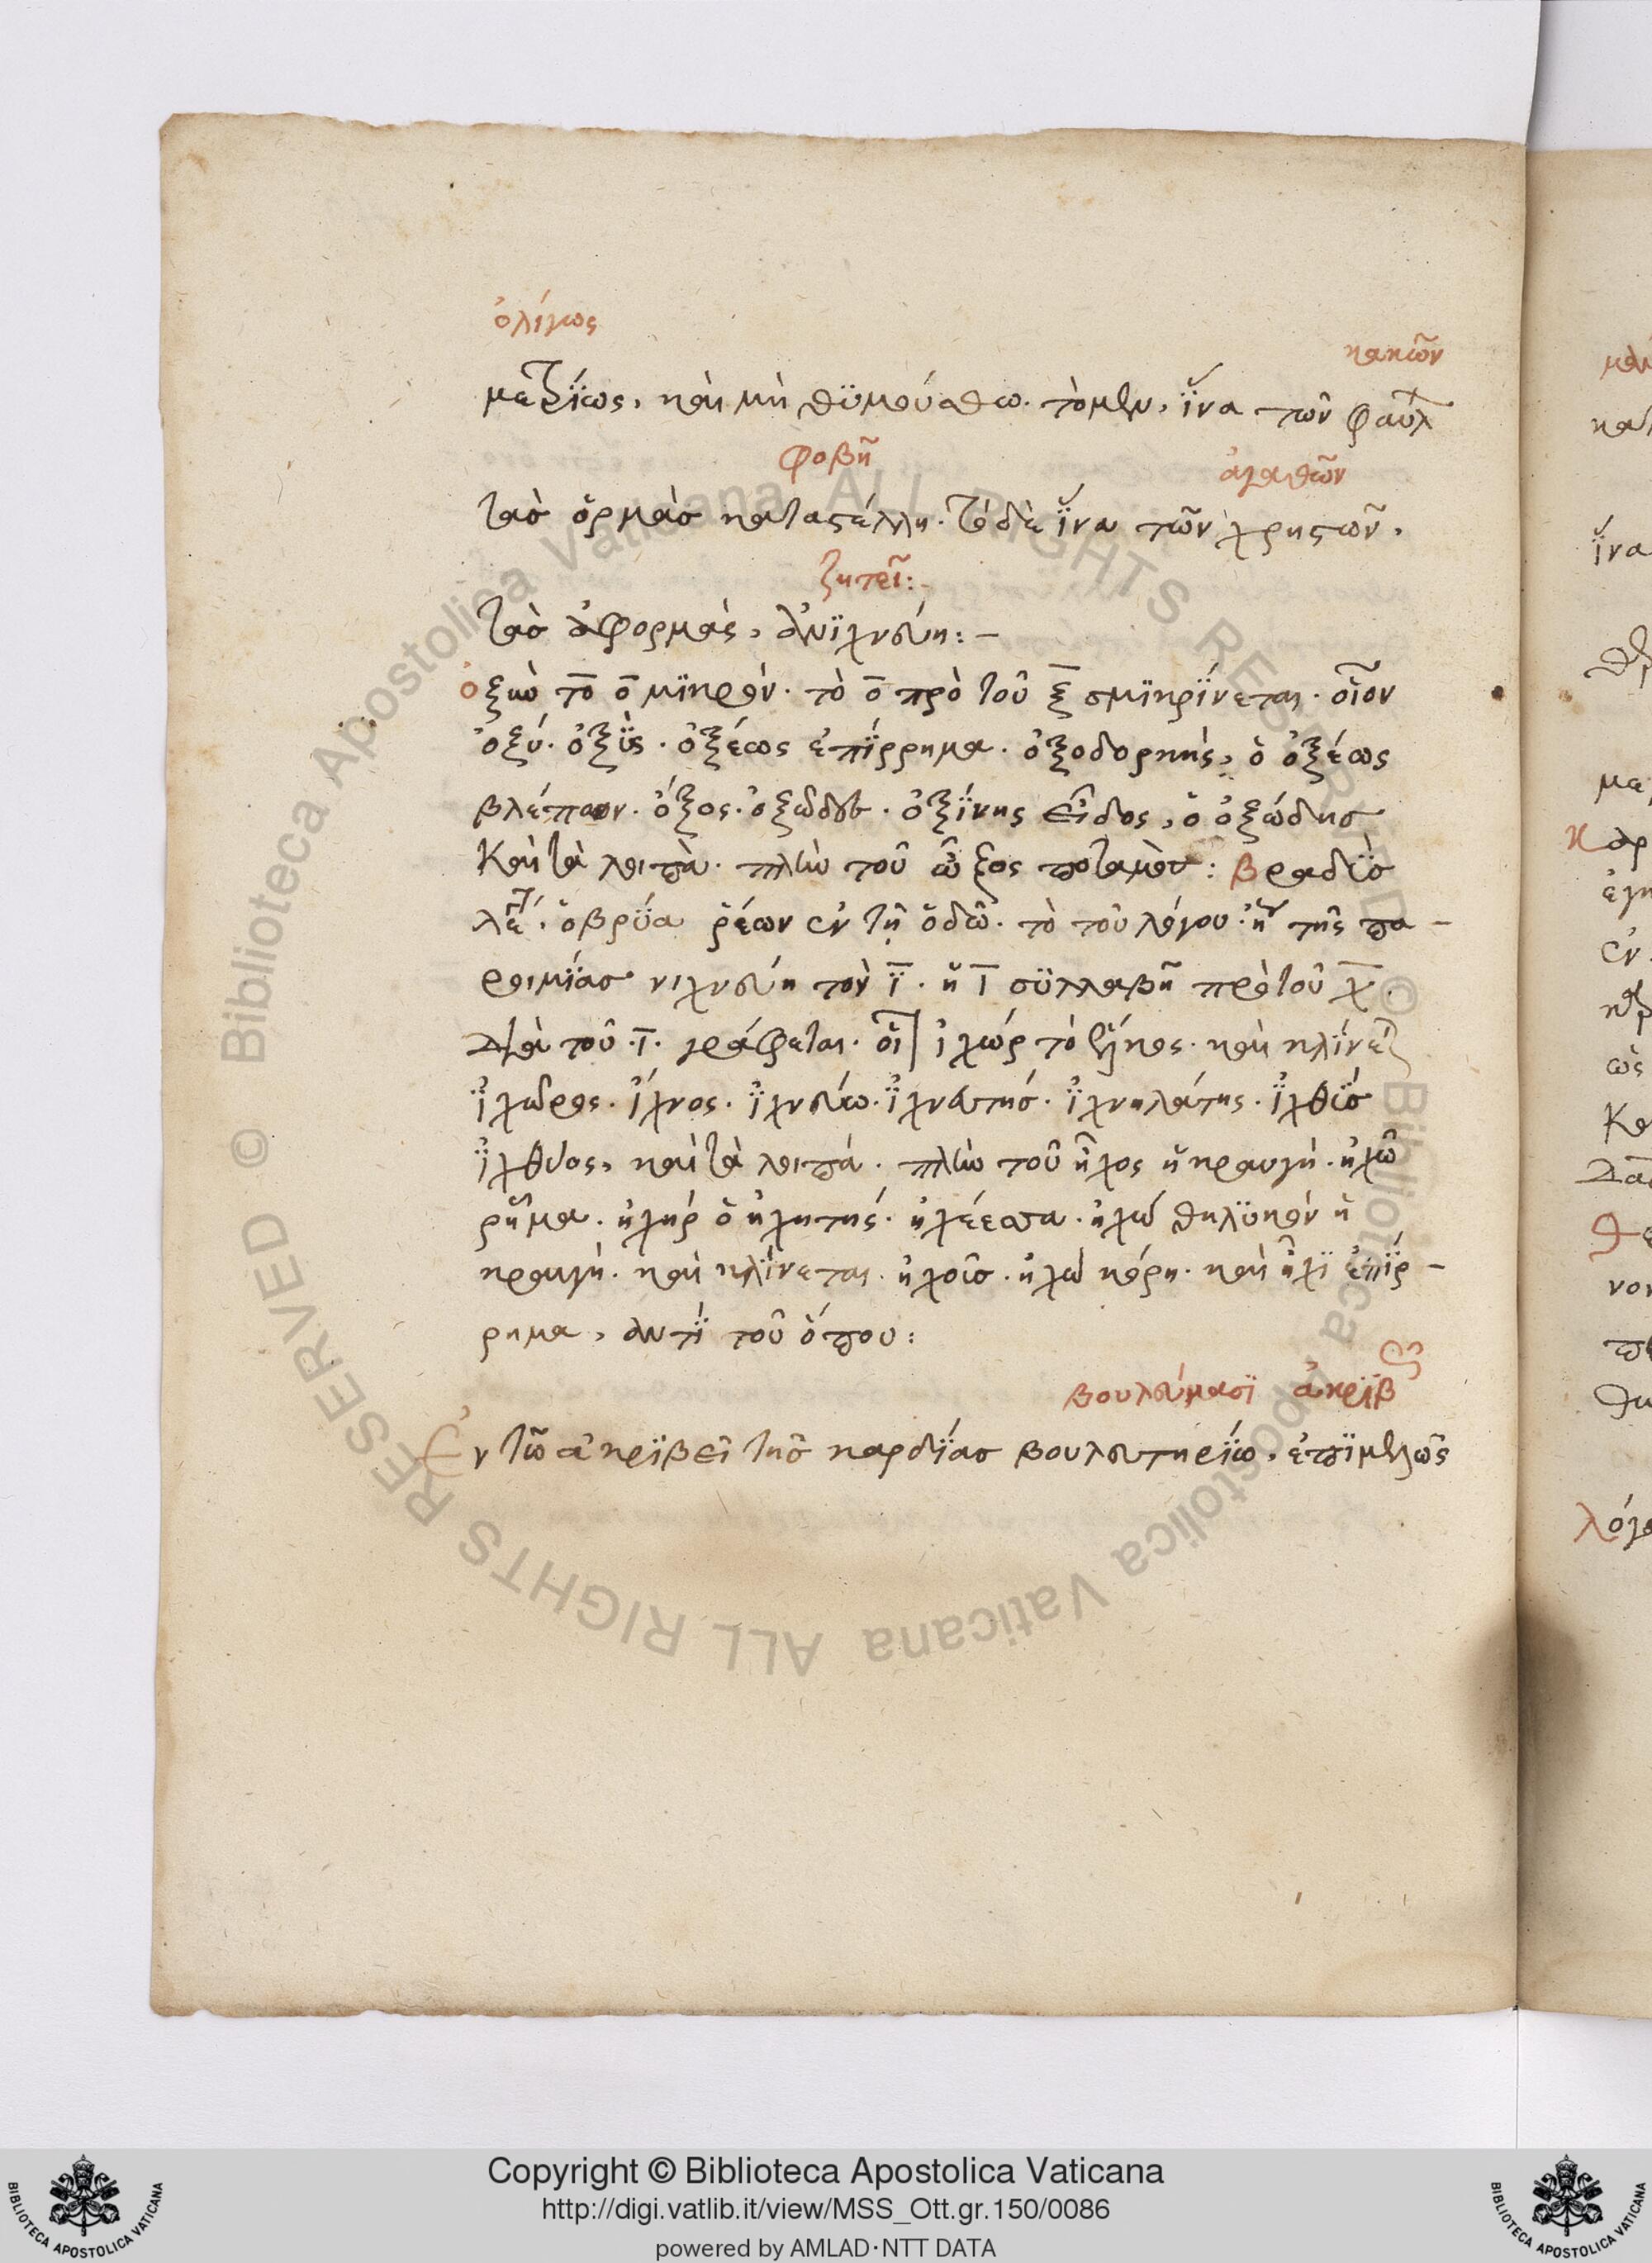 ὀλίγως
κακῶν
μετρΐως, καὶ μὴ θϋμούσθω. τὸ μὲν, ἵνα τῶν φαύλ
φοβῆ
ἀγαθῶν
τὰσ ὁρμὰσ καταστέλλη. τὸ δὲ ἵνα τῶν χρηστῶν,
ζητεῖ:
τὰσ ἀφορμὰς, ἀνϊχνεύη: –
ὀξὺ τὸ ο̅ μϊκρόν. τὸ ο̅ πρὸ τοῦ ξ̅ σμϊκρΐνεται. οἷον
ὀξύ. ὀξῢς. ὀξέως ἐπΐρρημα. ὀξυδορκὴς, ὁ ὀξέως
βλέπων. ὄξος. ὀξῶδες. ὀξΐνης εἶδος, ὁ ὀξώδησ
Καὶ τὰ λοιπὰ. πλὴν τοῦ ὦξος ποταμὸς: βραδῢσ
ὀβρΰα ῥέων ἐν τῆ ὁδῶ. τὸ τοῦ λόγου. ἢ τῆς πα-
ροιμΐασ νιχνεύη τὸν ϊ̅. ἡ ι̅ σϋλλαβὴ πρὸ τοῦ χ̅.
Διὰ τοῦ .ι̅. γράφεται. οἷ ἰχώρ τὸ καὶ κλΐνετ
ἰχῶρος. ἴχνος. ἰχνεύω. ἰχνευτήσ. ἰχνηλάτης. ἰχθῢσ
ἰχθύος, καὶ τὰ λοιπά. πλὴν τοῦ ἦχος ἡ κραυγὴ. ἠχῶ
ῥῆμα. ἠχὴρ ὁ ἠχητής. ἠχέεσσα. ἠχὼ θηλϋκὸν ἡ
κραυγὴ. καὶ κλΐνεται. ἠχοῖσ. ἠχὼ κόρη. καὶ ἧχϊ ἐπΐρ-
ρημα, ἀντῒ τοῦ ὅπου:
βουλεύμασϊ ἀκρϊβ
Ἐν τῶ ἀκρϊβεῖ τῆσ καρδΐασ βουλευτηρΐω, ἐπϊμελῶς
Copyright © Biblioteca Apostolica Vaticana
http://digi.vatlib.it/view/MSS_Ott.gr.150/0086
powered by AMLAD·NTT DATA